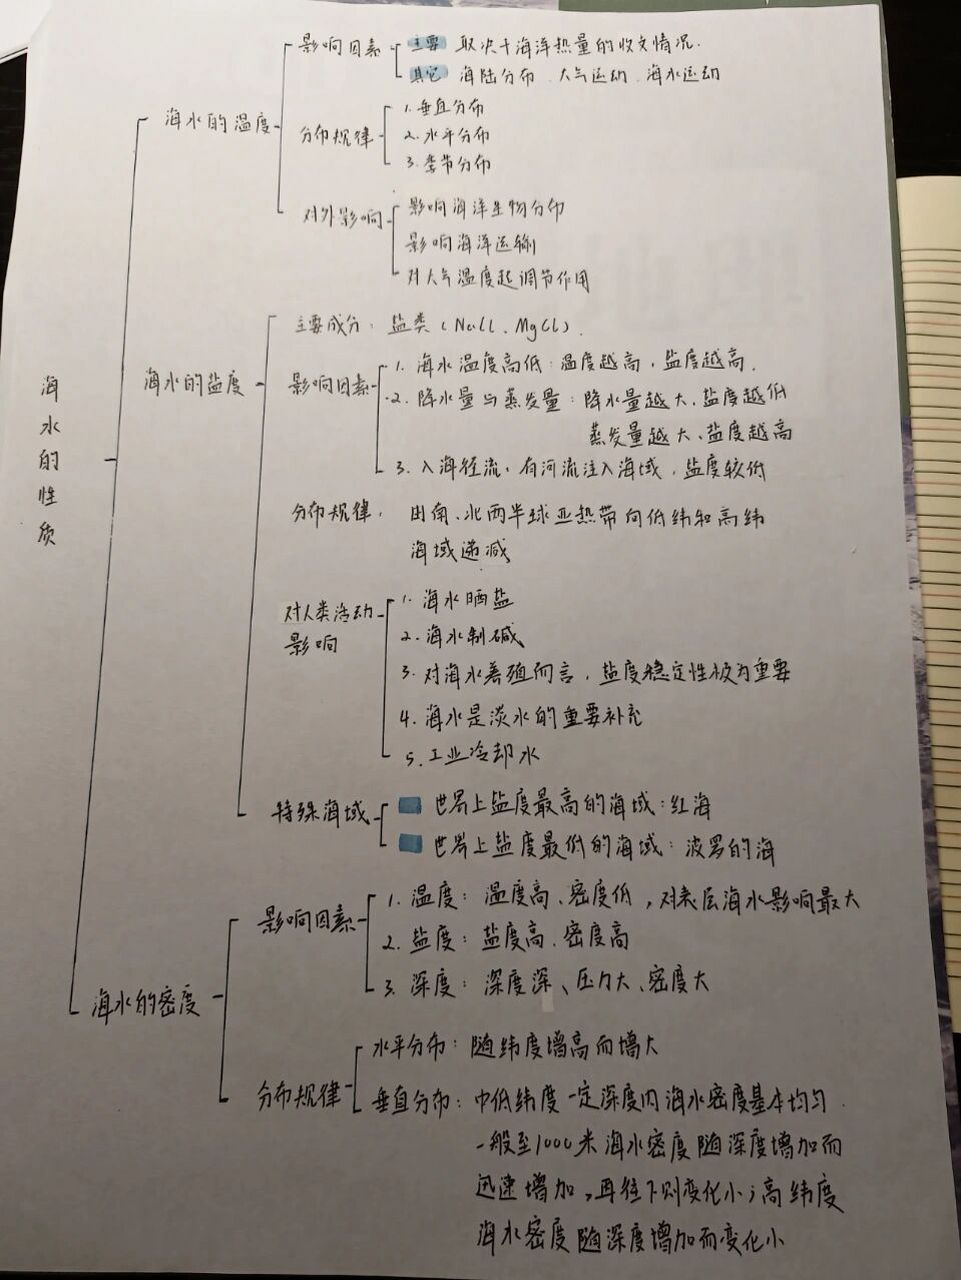 海水的性质
海水的温度
影响因素
主要 取决于海洋热量的收支情况.
其它 海陆分布、大气运动、海水运动
分布规律
1.垂直分布
2.水平分布
3.季节分布
对外影响
影响海洋生物分布
影响海洋运输
对大气温度起调节作用
海水的盐度
主要成分: 盐类(NaCl、MgCl).
影响因素
1.海水温度高低:温度越高,盐度越高.
2.降水量与蒸发量:降水量越大、盐度越低
蒸发量越大、盐度越高
3.入海径流,有河流注入海域,盐度较低
分布规律,
由南、北两半球亚热带向低纬和高纬
海域递减
对人类活动
影响
1.海水晒盐
2.海水制碱
3.对海水养殖而言,盐度稳定性极为重要
4.海水是淡水的重要补充
5.工业冷却水
特殊海域
世界上盐度最高的海域:红海
世界上盐度最低的海域:波罗的海
海水的密度
影响因素
1.温度:温度高、密度低,对表层海水影响最大
2.盐度:盐度高、密度高
3.深度:深度深、压力大、密度大
分布规律
水平分布:随纬度增高而增大
垂直分布:中低纬度一定深度内海水密度基本均匀.
一般至1000米海水密度随深度增加而
迅速增加,再往下则变化小;高纬度
海水密度随深度增加而变化小